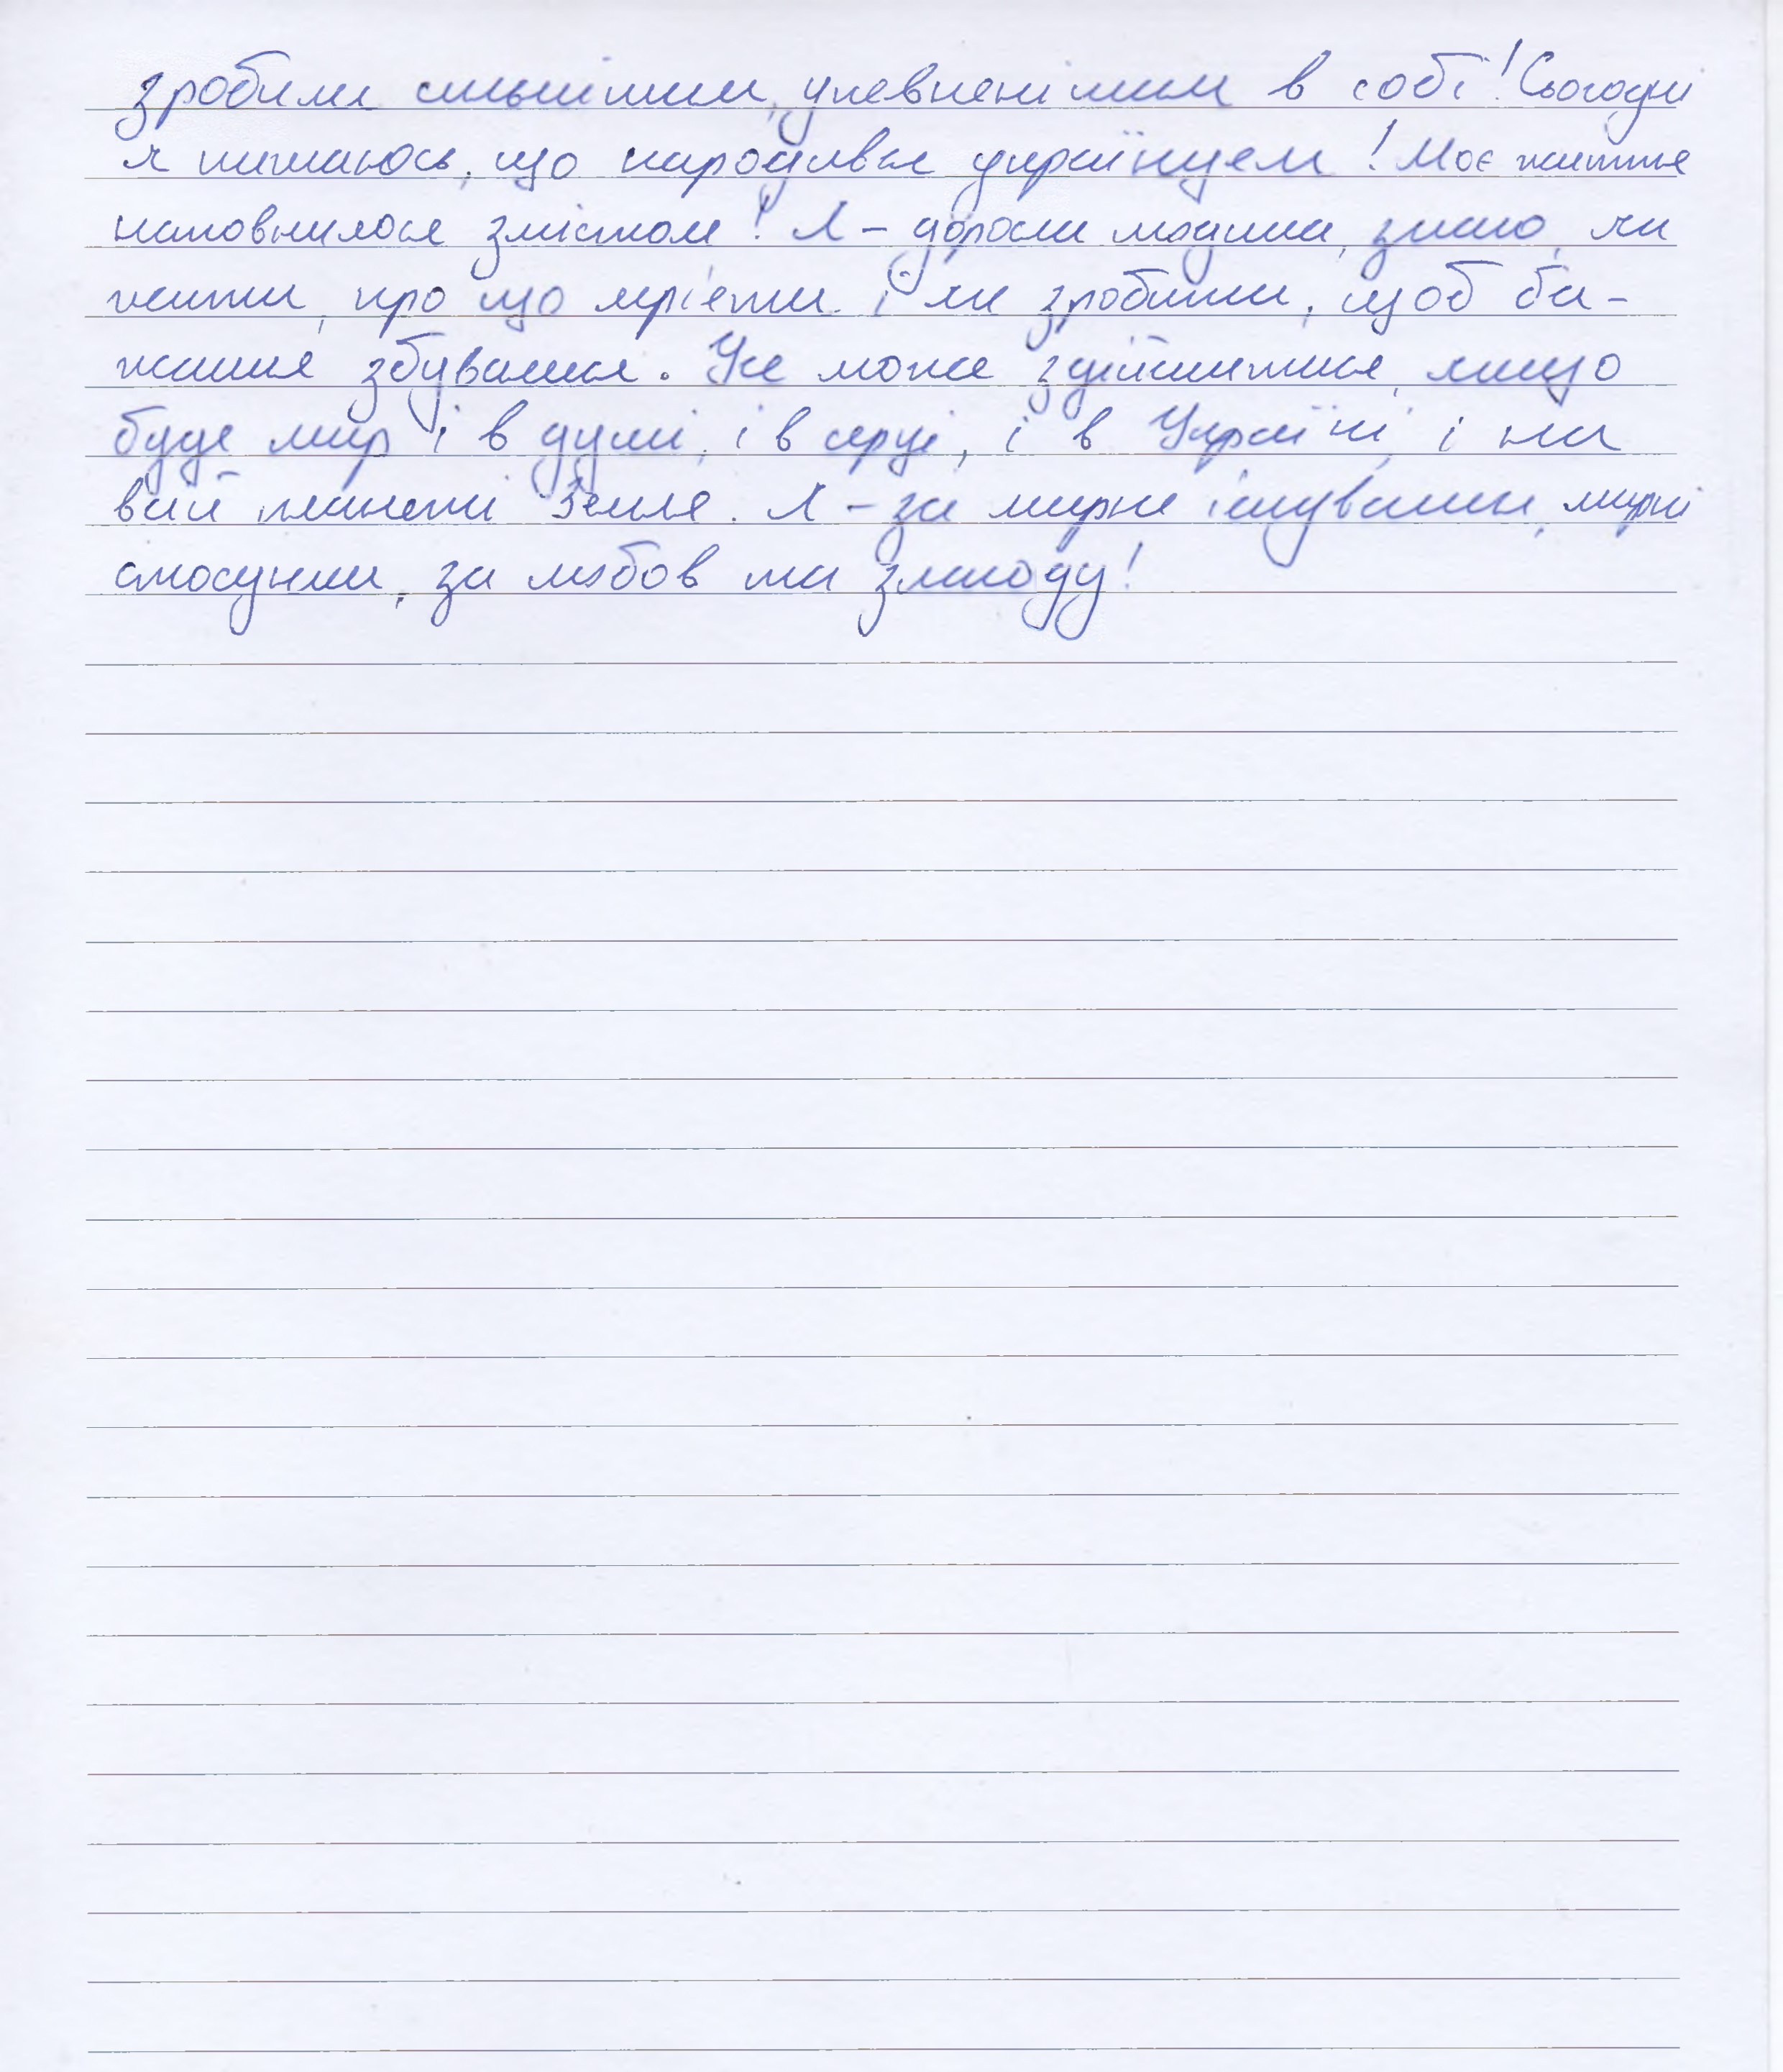 зробили сильнішим, упевненішим в собі! Сьогодні
я пишаюсь, що народився українцем! Моє життя
наповнилося змістом! Я – доросла людина, знаю, як
жити, про що мріяти і як зробити, щоб ба-
жання збувалися. Усе може здійснитися, якщо
буде мир і в душі, і в серці, і в Україні, і на
всій планеті Земля. Я – за мирне існування, мирні
стосунки, за любов та злагоду!